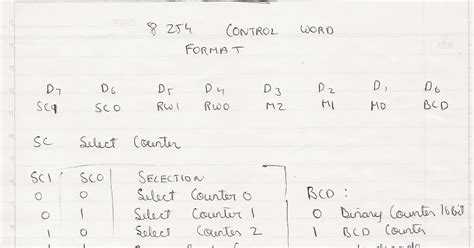 8254 CONTROL WORD
FORMAT
D7 D6 D5 D4 D3 D2 D1 D6
SC1 SC0 RW1 RW0 M2 M1 M0 BCD
SC Select Counter
SC1 SC0 SELECTION
0 0 Select Counter 0 BCD :
0 1 Select Counter 1 0 Binary Counter 16 bit
1 0 Select Counter 2 1 BCD Counter